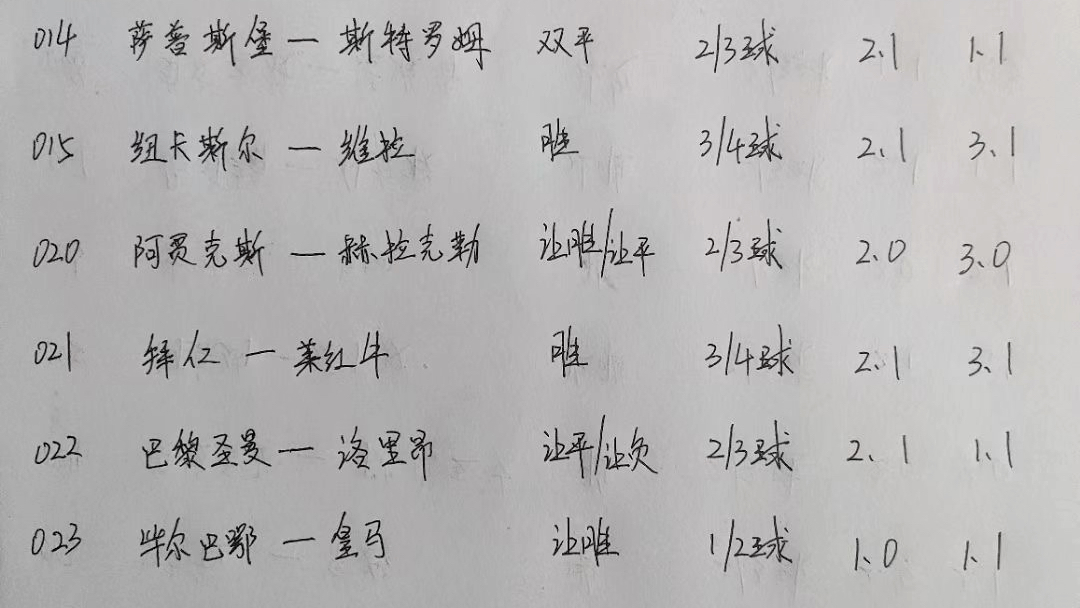 014 萨普斯堡一斯特罗姆 双平 2/3球 2.1 1.1
015 纽卡斯尔 一 维拉 胜 3/4球 2.1 3.1
020 阿贾克斯 一 赫拉克勒 让胜/让平 2/3球 2.0 3.0
021 拜仁 一 莱红牛 胜 3/4球 2.1 3.1
022 巴黎圣曼 一 洛里昂 让平/让负 2/3球 2.1 1.1
023 毕尔巴鄂 一 皇马 让胜 1/2球 1.0 1.1